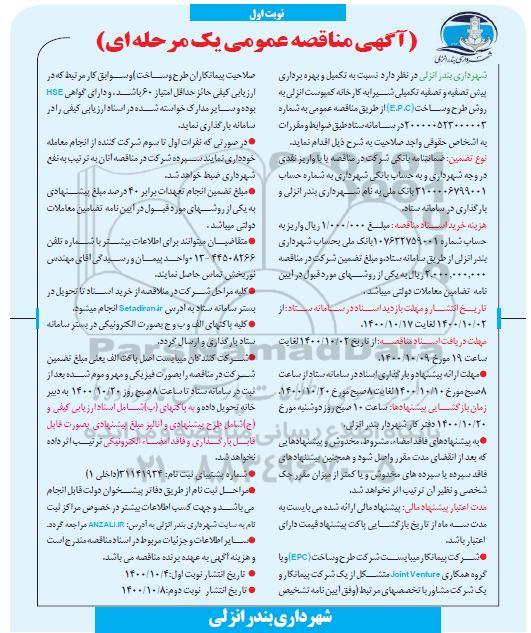 نوبت اول
شهرداری بندر انزلی
(آگهی مناقصه عمومی یک مرحله ای)
شهرداری بندر انزلی در نظر دارد نسبت به تکمیل و بهره برداری
پیش تصفیه و تصفیه تکمیلی شیرابه کارخانه کمپوست انزلی به
روش طرح و ساخت (E.P.C) از طریق مناقصه عمومی به شماره
۲۰۰۰۰۰۵۲۳۰۰۰۰۰۳ در سامانه ستاد طبق ضوابط و مقررات
به اشخاص حقوقی واجد صلاحیت به شرح ذیل اقدام نماید.
نوع تضمین: ضمانتنامه بانکی شرکت در مناقصه یا با واریز نقدی
در وجه شهرداری و به حساب بانکی شهرداری به شماره حساب
۳۱۰۰۰۰۶۷۹۹۰۰۱ بانک ملی به نام شهرداری بندر انزلی و
بارگذاری در سامانه ستاد.
هزینه خرید اسناد مناقصه: مبلغ ۱/۰۰۰/۰۰۰ ریال واریز به
حساب شماره ۰۱۰۷۶۳۲۷۵۹۰۰۱ بانک ملی بحساب شهرداری
بندر انزلی از طریق سامانه ستاد و مبلغ تضمین شرکت در مناقصه
۲,۰۰۰,۰۰۰,۰۰۰ ریال به یکی از روشهای مورد قبول در آیین
نامه تضامین معاملات دولتی میباشد.
تاریخ انتشار و مهلت بازدید اسناد در سامانه ستاد: از
۱۴۰۰/۱۰/۰۲ لغایت ۱۴۰۰/۱۰/۱۷.
مهلت دریافت اسناد مناقصه: از تاریخ ۱۴۰۰/۱۰/۰۲ لغایت
ساعت ۱۹ مورخ ۱۴۰۰/۱۰/۰۹.
●مهلت ارائه پیشنهاد و بارگذاری اسناد در سامانه ستاد از ساعت
۸ صبح مورخ ۱۴۰۰/۱۰/۱۰ لغایت ۸ صبح مورخ ۱۴۰۰/۱۰/۲۰
زمان بازگشایی پیشنهادها: ساعت ۱۰ صبح روز دوشنبه مورخ
۱۴۰۰/۱۰/۲۰ دفتر کار شهردار بندر انزلی.
●به پیشنهادهای فاقد امضاء، مشروط، مخدوش و پیشنهادهایی
که بعد از انقضای مدت مقرر واصل شود و همچنین پیشنهادهای
فاقد سپرده یا سپرده های مخدوش و یا کمتر از میزان مقرر چک
شخصی و نظیر آن ترتیب اثر نخواهد شد.
مدت اعتبار پیشنهاد مالی: پیشنهاد مالی ارائه شده می بایست به
مدت سه ماه از تاریخ بازگشایی پاکت پیشنهاد قیمت دارای
اعتبار باشد.
●شرکت پیمانکار میبایست شرکت طرح و ساخت (EPC) و یا
گروه همکاری Joint Venture متشکل از یک شرکت پیمانکار و
یک شرکت مشاور با تخصصهای مرتبط (وفق آیین نامه تشخیص
صلاحیت پیمانکاران طرح و ساخت) و سوابق کار مرتبط که در
ارزیابی کیفی حائز حداقل امتیاز ۶۰ باشد. و دارای گواهی HSE
بوده و سایر مدارک خواسته شده در اسناد ارزیابی کیفی را در
سامانه بارگذاری نماید.
●در صورتی که نفرات اول تا سوم شرکت کننده از انجام معامله
خودداری نمایند سپرده شرکت در مناقصه آنان به ترتیب به نفع
شهرداری ضبط خواهد شد.
●مبلغ تضمین انجام تعهدات برابر ۴۰ درصد مبلغ پیشنهادی
به یکی از روشهای مورد قبول در آیین نامه تضامین معاملات
دولتی میباشد.
●متقاضیان میتوانند برای اطلاعات بیشتر با شماره تلفن
۰۱۳-۴۴۵۰۸۲۶۶ واحد پیمان و رسیدگی آقای مهندس
نوربخش تماس حاصل نمایند.
●کلیه مراحل شرکت در مناقصه از خرید اسناد تا تحویل در
بستر سامانه ستاد به آدرس Setadiran.ir انجام میشود.
●کلیه پاکتهای الف و ب و ج بصورت الکترونیکی در بستر سامانه
ستاد بارگذاری و ارسال گردد.
●شرکت کنندگان میبایست اصل پاکت الف یعنی مبلغ تضمین
شرکت در مناقصه را بصورت فیزیکی و مهر و موم شده بعد از
ثبت در سامانه ستاد تا ساعت ۸ صبح روز ۱۴۰۰/۱۰/۲۰ به دبیر
خانه تحویل داده و به پاکتهای (ب) شامل اسناد ارزیابی کیفی و
(ج) شامل طرح پیشنهادی و آنالیز مبلغ پیشنهادی بصورت فایل
قابل بارگذاری و فاقد امضاء الکترونیکی ترتیب اثر داده
نخواهد شد.
●شماره پشتیبای ثبت نام: ۳۱۱۴۱۹۳۴ (داخلی ۱)
●مراحل ثبت نام از طریق دفاتر پیشخوان دولت قابل انجام
می باشد و جهت کسب اطلاعات بیشتر در خصوص مراکز ثبت
نام به سایت شهرداری بندر انزلی به آدرس: ANZALI.IR مراجعه گردد.
●سایر اطلاعات و جزئیات مربوط در اسناد مناقصه مندرج است
و هزینه آگهی به عهده برنده مناقصه می باشد.
●تاریخ انتشار نوبت اول: ۱۴۰۰/۱۰/۴
●تاریخ انتشار نوبت دوم: ۱۴۰۰/۱۰/۸
شهرداری بندر انزلی